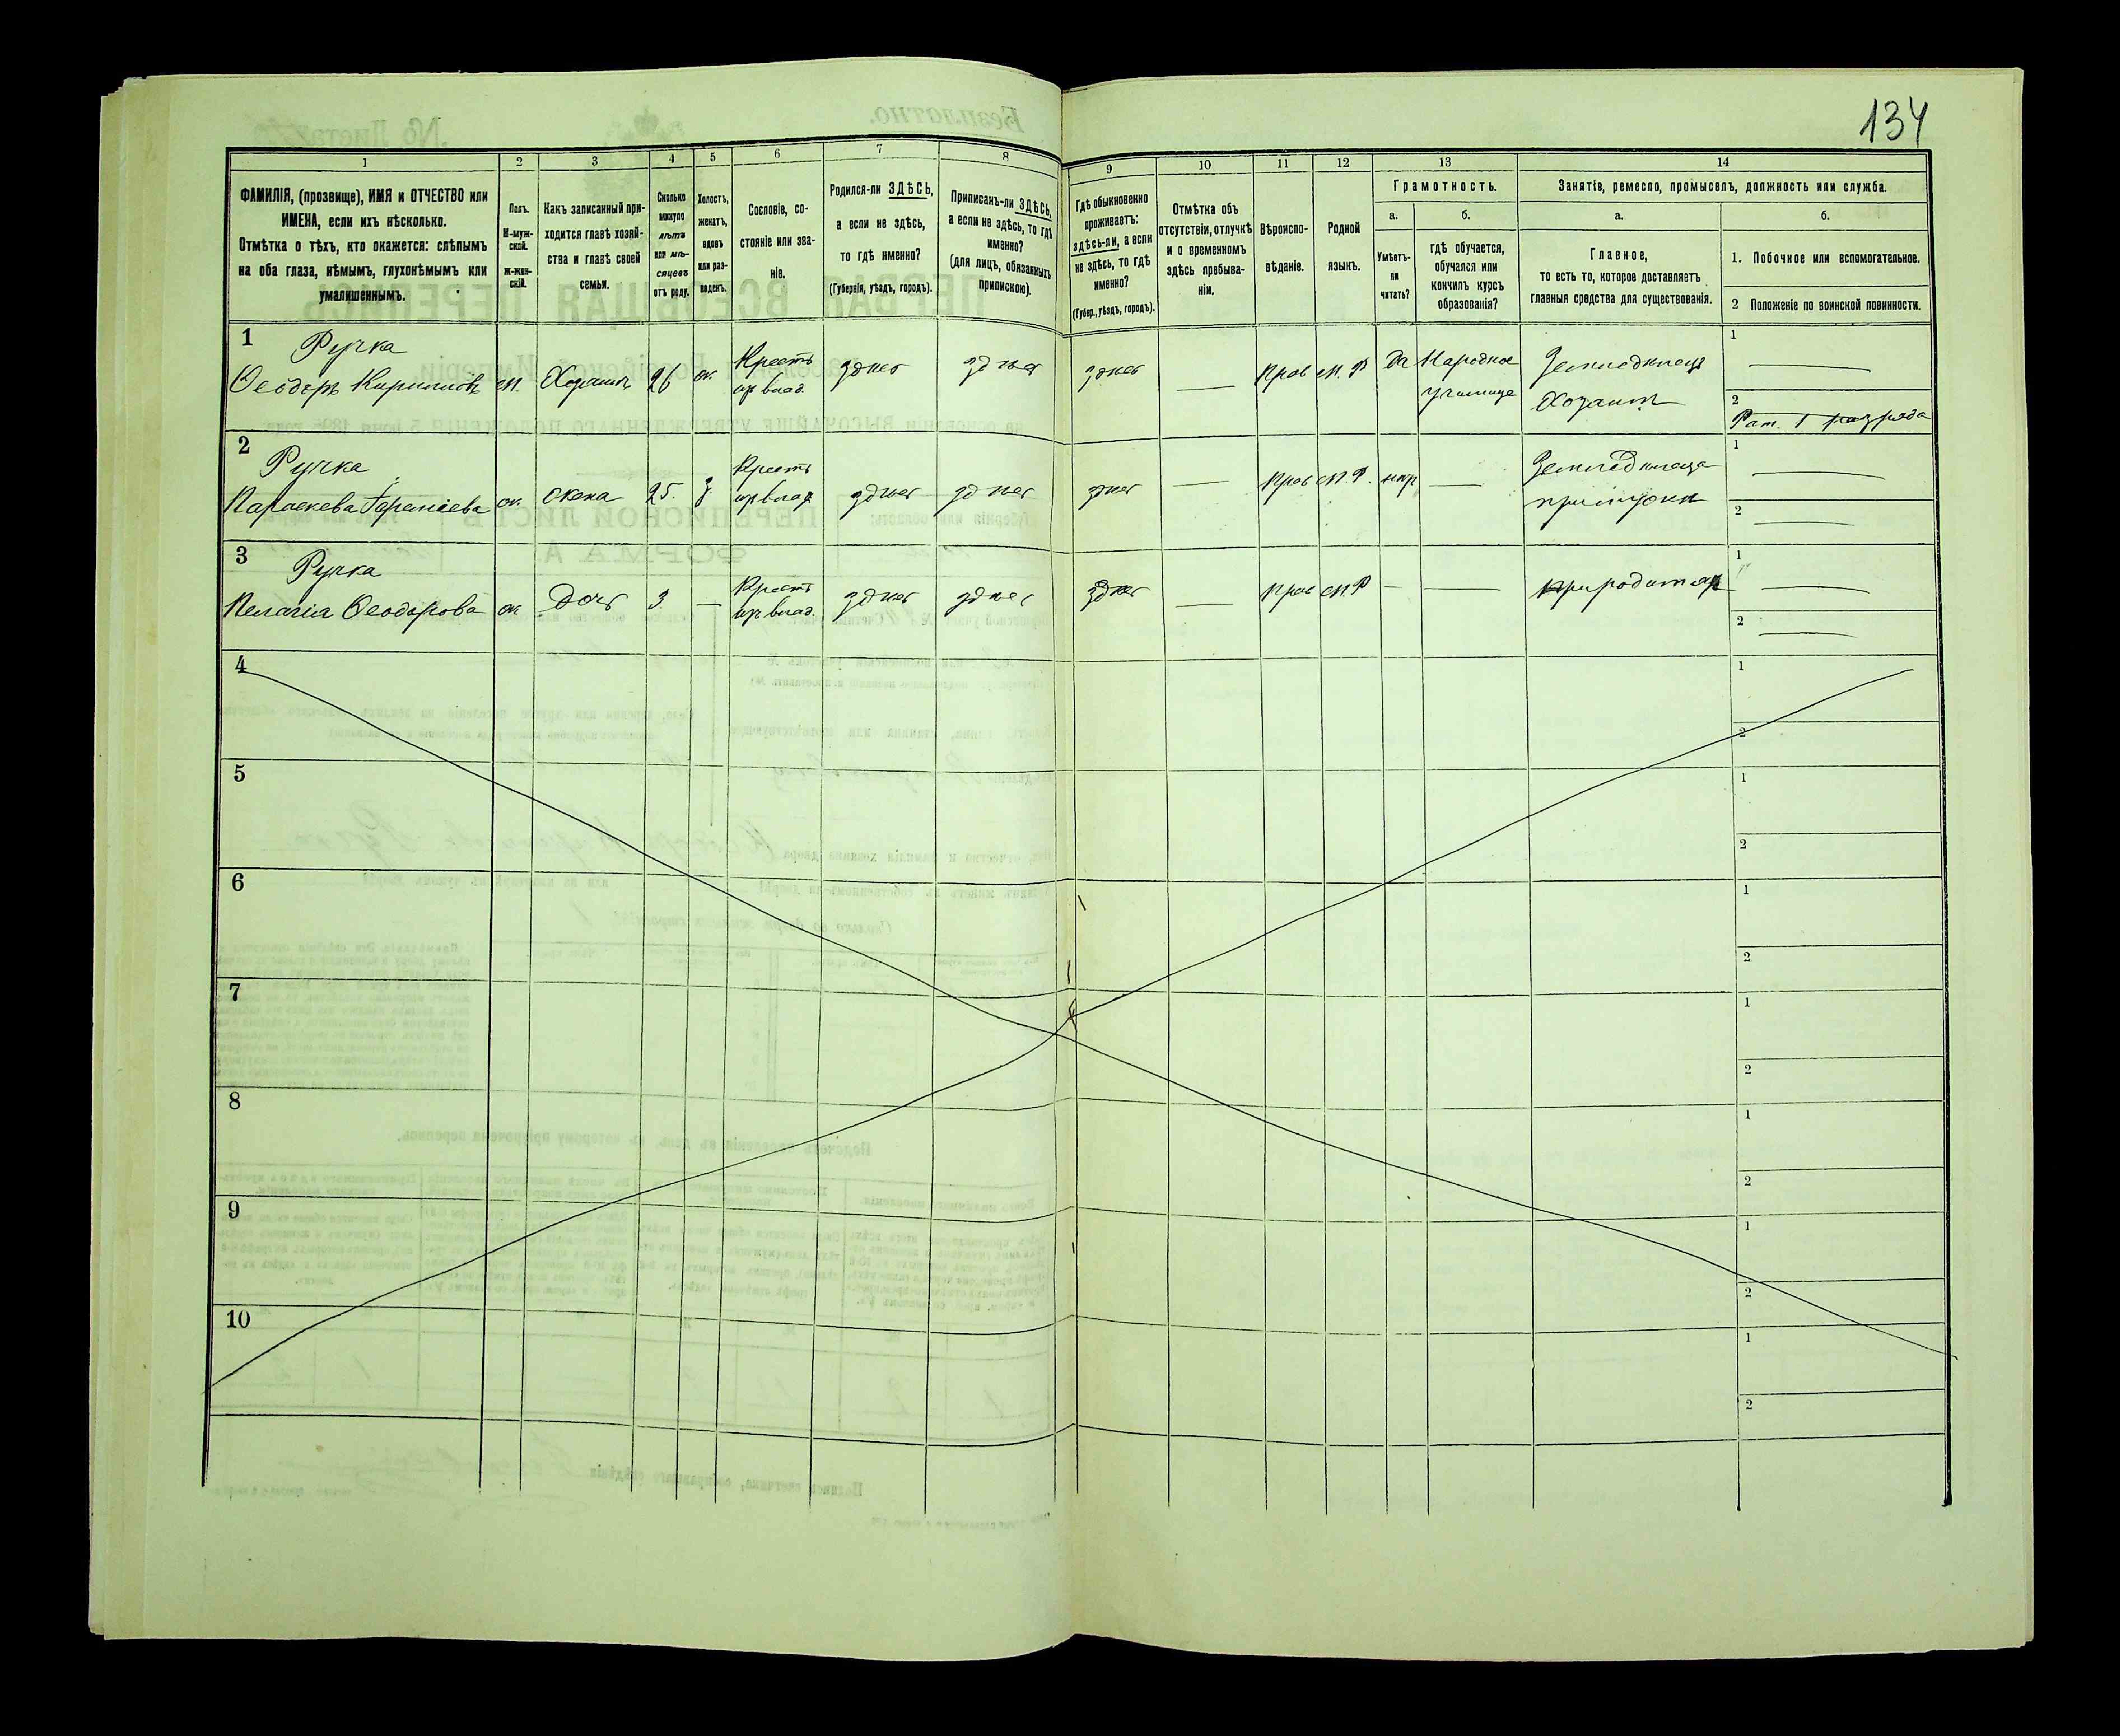 134
1
2
3
4
5
6
7
8
9
10
11
12
13
14
ФАМИЛІЯ, (прозвище), ИМЯ и ОТЧЕСТВО или
ИМЕНА, если ихъ нѣсколько.
Отмѣтка о тѣхъ, кто окажется: слѣпымъ
на оба глаза, нѣмымъ, глухонѣмымъ или
умалишеннымъ.
Полъ.
М-муж-
ской.
ж-жен-
скій.
Какъ записанный при-
ходится главѣ хозяй-
ства и главѣ своей
семьи.
Сколько
минуло
лѣтъ
или мѣ-
сяцевъ
отъ роду.
Холостъ,
женатъ,
вдовъ
или раз-
веденъ.
Сословіе, со-
стояніе или зва-
ніе.
Родился-ли ЗДѢСЬ,
а если не здѣсь,
то гдѣ именно?
(Губернія, уѣздъ, городъ).
Приписанъ-ли ЗДѢСЬ,
а если не здѣсь, то гдѣ
именно?
(для лицъ, обязанныхъ
припискою).
Гдѣ обыкновенно
проживаетъ:
здѣсь-ли, а если
не здѣсь, то гдѣ
именно?
(Губер., уѣздъ, городъ).
Отмѣтка объ
отсутствіи, отлучкѣ
и о временномъ
здѣсь пребыва-
ніи.
Вѣроиспо-
вѣданіе.
Родной
языкъ.
Грамотность.
а.
Умѣетъ-
ли
читать?
б.
гдѣ обучается,
обучался или
кончилъ курсъ
образованія?
Занятіе, ремесло, промыселъ, должность или служба.
а.
Главное,
то есть то, которое доставляетъ
главныя средства для существованія.
б.
1. Побочное или вспомогательное.
2 Положеніе по воинской повинности.
1
Ручка
Ѳеодоръ Кириловъ
м.
Хозяинъ
26
ж.
Крестъ
изъ влад.
здѣсь
здѣсь
здѣсь
Прав
М. Р
Да
Народное
училище
Земледѣлецъ
Хозяинъ
1
2
Рат. 1 разряда
2
Ручка
Параскева
ж.
жена
25.
з.
Крестъ
изъ влад
здѣсь
здѣсь
здѣсь
Прав
М. Р.
нѣтъ
Земледѣлеца
при мужѣ
1
2
3
Ручка
Пелагія Ѳеодорова
ж.
Дочь
3
Крест
изъ влад.
здѣсь
здѣсь
здѣсь
Прав
М. Р
при родителяхъ
1
2
4
1
2
5
1
2
6
1
2
7
1
2
8
1
2
9
1
2
10
1
2